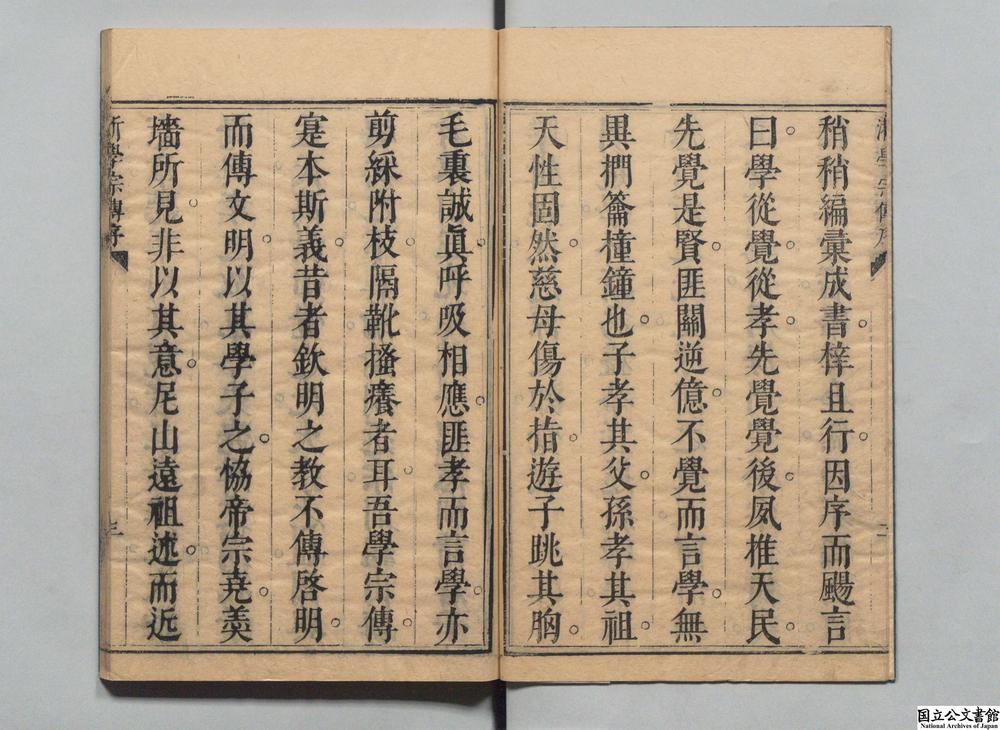 稍稍編彙成書梓且行因序而颺言
曰學從覺從孝先覺覺後夙推天民
先覺是賢匪關逆億不覺而言學無
異捫籥橦鐘也子孝其父孫孝其祖
天性固然慈母傷於指遊子跳其胸
毛裏誠眞呼吸相應匪孝而言學亦
剪綵附枝隔靴搔癢者耳吾學宗傳
寔本斯義昔者欽明之教不傳啓明
而傳文明以其學子之恊帝宗堯羮
墻所見非以其意尼山遠祖述而近
學宗傳序
三
国立公文書館
National Archives of Japan